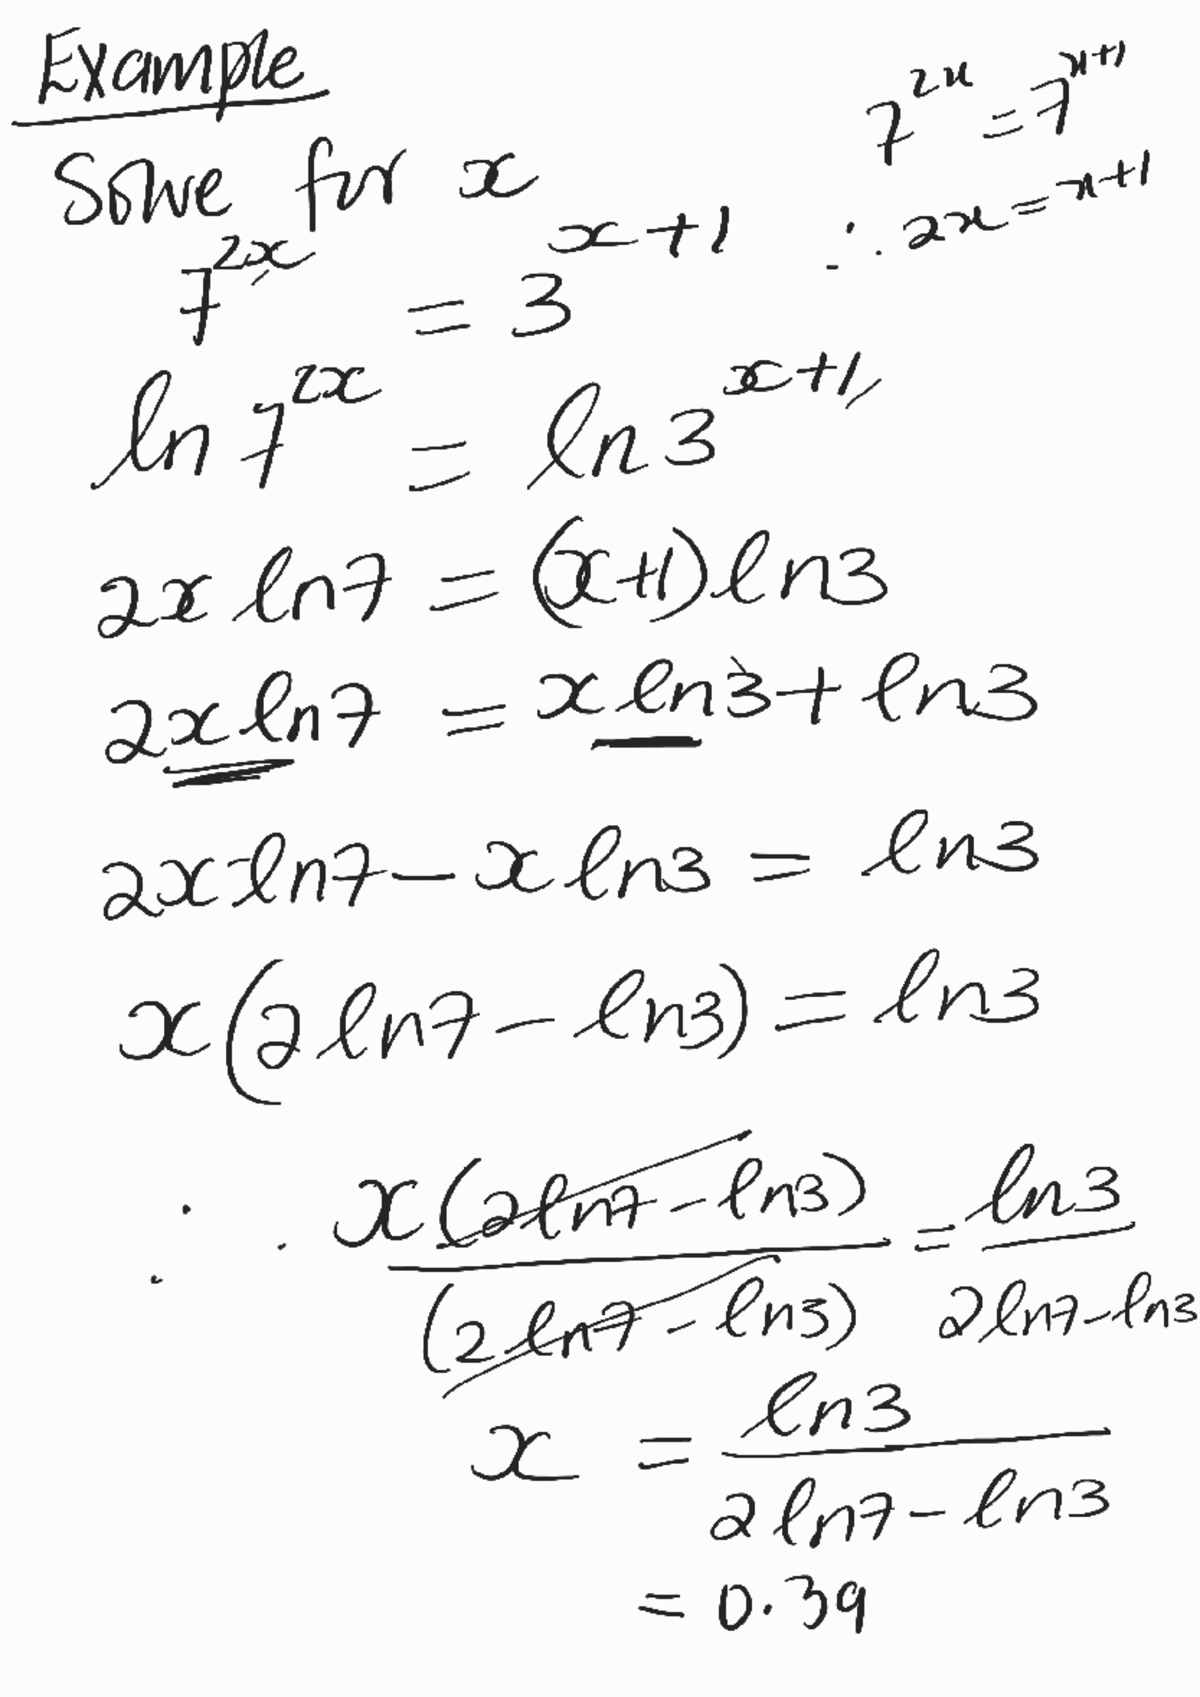 Example
7^{2x} = 7^{x+1}
∴ 2x = x+1
Solve for x
7^{2x} = 3^{x+1}
ln 7^{2x} = ln 3^{x+1}
2x ln7 = (x+1) ln3
2x ln7 = x ln3 + ln3
2x ln7 - x ln3 = ln3
x(2 ln7 - ln3) = ln3
∴ x(2ln7 - ln3) / (2ln7 - ln3) = ln3 / 2ln7 - ln3
x = ln3 / 2 ln7 - ln3
= 0.39